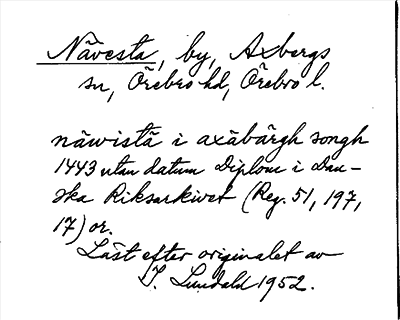 Nävesta, by, Axbergs
sn, Örebro hd, Örebro l.
näwistä i axabärgh songh
1443 utan datum Diplom i Dan-
ska Riksarkivet (Reg. 51, 197,
17) or.
Läst efter originalet av
I. Lundahl 1952.